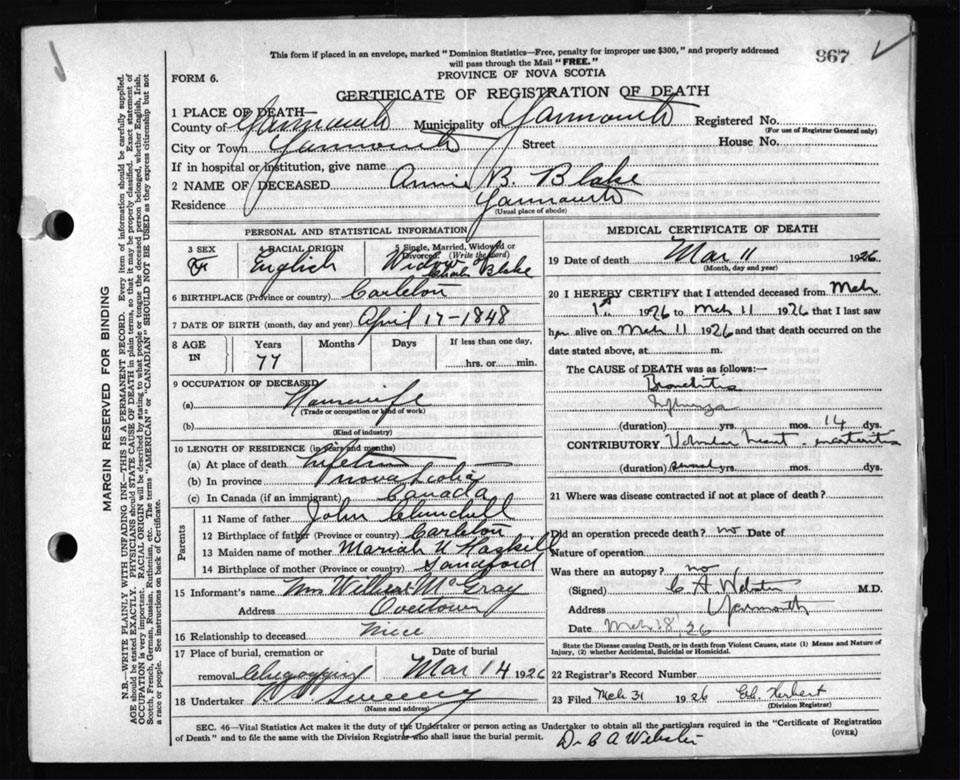 This form if placed in an envelope, marked "Dominion Statistics—Free, penalty for improper use $300," and properly addressed
will pass through the Mail "FREE."
867
PROVINCE OF NOVA SCOTIA
FORM 6.
CERTIFICATE OF REGISTRATION OF DEATH
1 PLACE OF DEATH—
County of Yarmouth Municipality of Yarmouth Registered No.
(For use of Registrar General only)
City or Town Yarmouth Street House No.
If in hospital or institution, give name
2 NAME OF DECEASED Annie B. Blake
Residence Yarmouth
(Usual place of abode)
MARGIN RESERVED FOR BINDING
N.B.—WRITE PLAINLY WITH UNFADING INK—THIS IS A PERMANENT RECORD. Every item of information should be carefully supplied.
AGE should be stated EXACTLY. PHYSICIANS should STATE CAUSE OF DEATH in plain terms, so that it may be properly classified. Exact statement of
OCCUPATION is very important. RACIAL ORIGIN will be described by stating to what people or tongue the deceased person belonged, whether English, Irish,
Scotch, French, German, Russian, Ruthenian, etc. The terms "AMERICAN" or "CANADIAN" SHOULD NOT BE USED as they express citizenship but not
a race or people. See instructions on back of Certificate.
PERSONAL AND STATISTICAL INFORMATION
3 SEX
F
4 RACIAL ORIGIN
English
5 Single, Married, Widowed or
Divorced. (Write the word)
Widow
Charles Blake
6 BIRTHPLACE (Province or country) Carleton
7 DATE OF BIRTH (month, day and year) April 17-1848
8 AGE
IN
Years
77
Months
Days
If less than one day,
hrs. or min.
9 OCCUPATION OF DECEASED
(a) Housewife
(Trade or occupation or kind of work)
(b)
(Kind of industry)
10 LENGTH OF RESIDENCE (in years and months)
(a) At place of death Lifetime
(b) In province Nova Scotia
(c) In Canada (if an immigrant) Canada
Parents
11 Name of father John Churchill
12 Birthplace of father (Province or country) Carleton
13 Maiden name of mother Mariah Haskell
14 Birthplace of mother (Province or country) Sandford
15 Informant's name Mrs McGray
Address Overtown
16 Relationship to deceased niece
17 Place of burial, cremation or
removal Chegoggin
Date of burial
Mar 14 1926
18 Undertaker Sweeny
(Name and address)
MEDICAL CERTIFICATE OF DEATH
19 Date of death Mar 11 1926
(Month, day and year)
20 I HEREBY CERTIFY that I attended deceased from Mch
1st 1926 to Mch 11 1926 that I last saw
her alive on Mch 11 1926 and that death occurred on the
date stated above, at m.
The CAUSE of DEATH was as follows:—
Bronchitis
Influenza
(duration) yrs. mos. 14 dys.
CONTRIBUTORY Valvular heart
(duration) several yrs. mos. dys.
21 Where was disease contracted if not at place of death?
Did an operation precede death? no Date of
Nature of operation
Was there an autopsy? no
(Signed) C A Webster M.D.
Address Yarmouth
Date Mch 26
State the Disease causing Death, or in death from Violent Causes, state (1) Means and Nature of
Injury, (2) whether Accidental, Suicidal or Homicidal.
22 Registrar's Record Number
23 Filed Mch 31 1926 Herbert
(Division Registrar)
SEC. 46—Vital Statistics Act makes it the duty of the Undertaker or person acting as Undertaker to obtain all the particulars required in the "Certificate of Registration
of Death" and to file the same with the Division Registrar who shall issue the burial permit.
(OVER)
Dr C A Webster